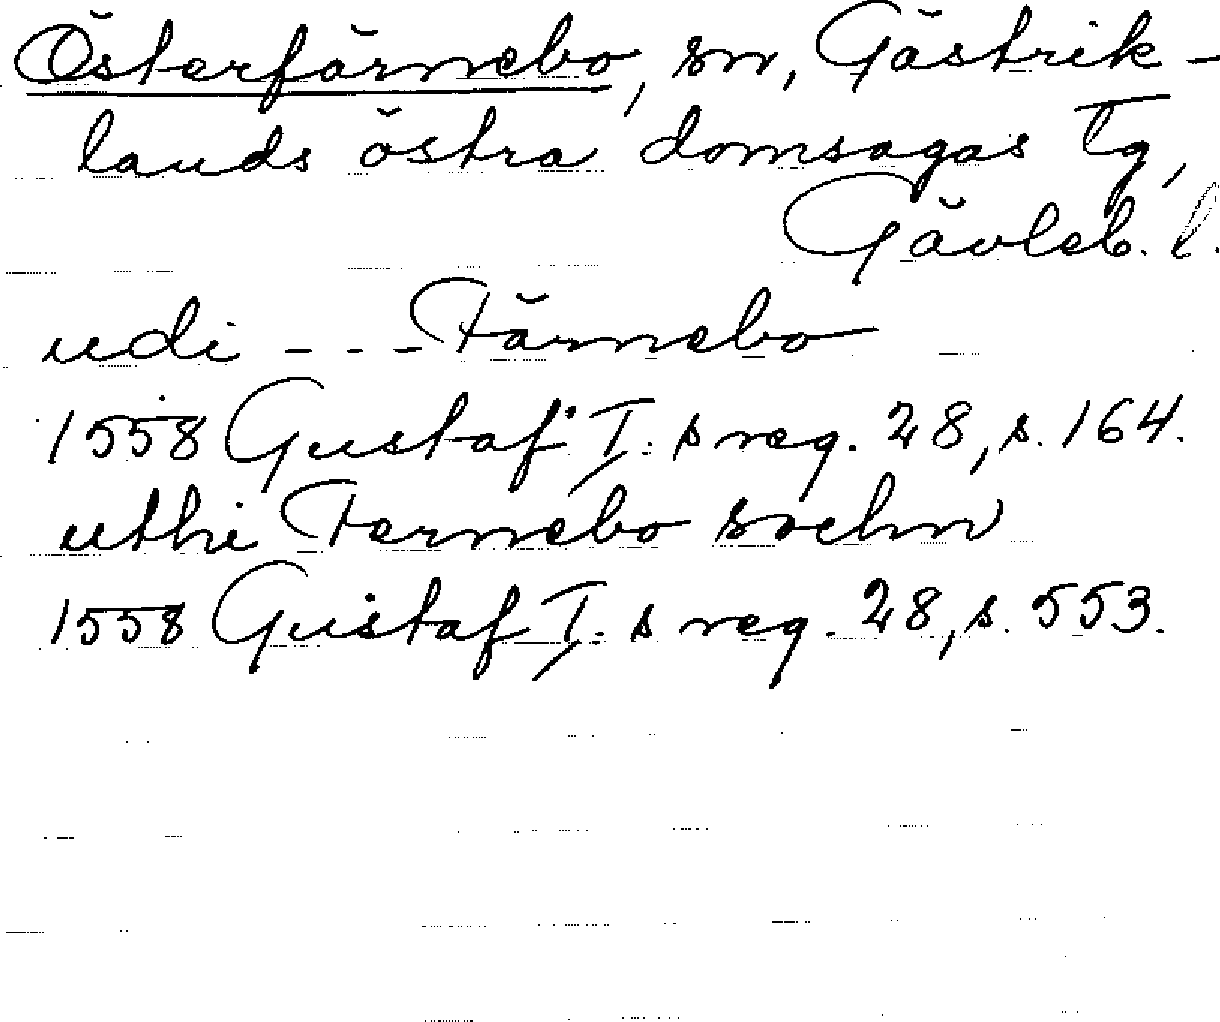 Österfärnebo, sn, Gästrik-
lands östra domsagas Tg,
Gävleb. l.
udi - - - Färnebo
1558 Gustaf I:s reg. 28, s. 164.
uthi Fernebo sochn
1558 Gustaf I:s reg. 28, s. 553.